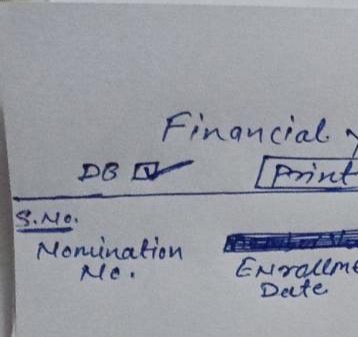 Financial
DB ☑ Print
S.No.
Nomination Enrollme
No. Date